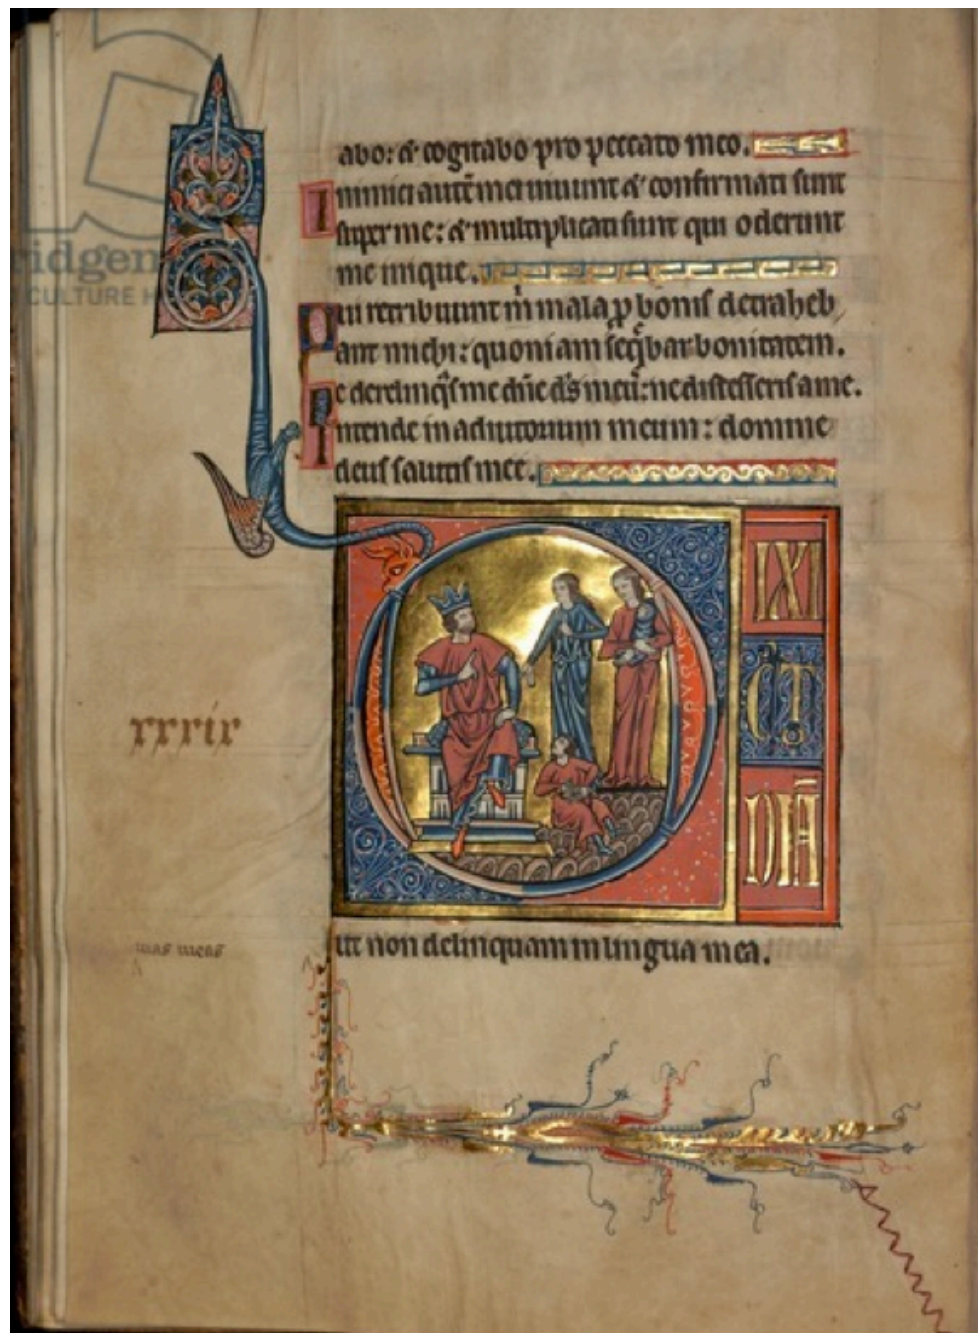 abo: & cogitabo pro peccato meo.
Inimici autē mei uiuunt & confirmati sunt
super me: & multiplicati sunt qui oderunt
me inique.
Qui retribuunt m̄ mala p bonis detraheb
ant michi: quoniam seq̄bar bonitatem.
Ne derelinq̄s me dn̄e ds̄ meus: ne discesseris a me.
Intende in adiutorium meum: domine
deus salutis mee.
DIXI
CV̄S
TODIĀ
xxxix
uias meas
ut non delinquam in lingua mea.
ridgen
CULTURE H